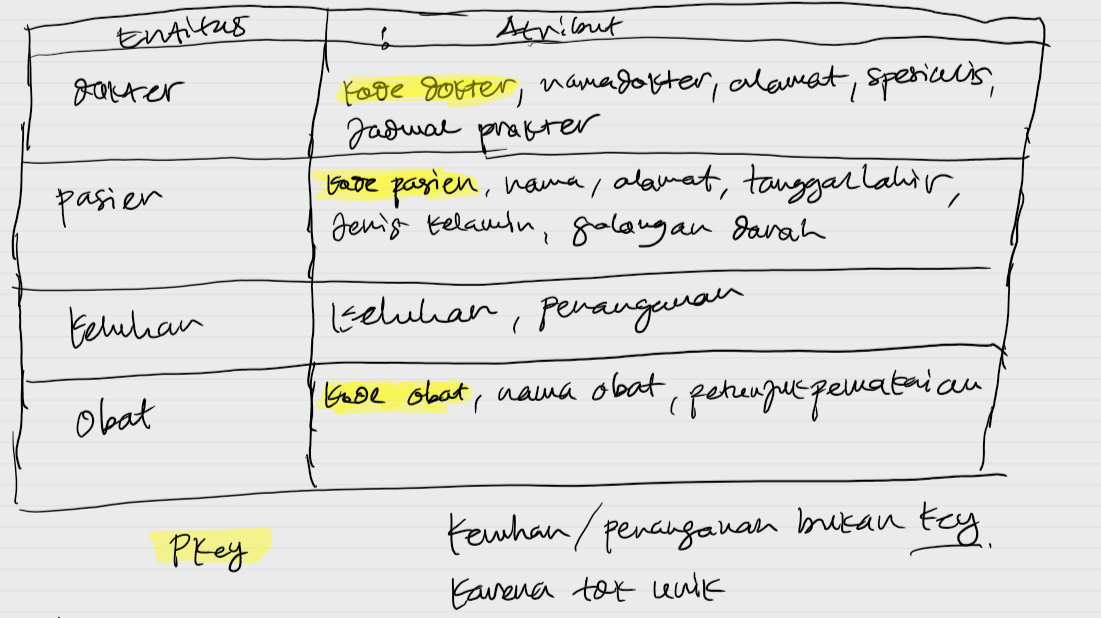 Entitas Atribut
dokter
kode dokter, nama dokter, alamat, spesialis,
Jadwal prakter
pasien
kode pasien, nama, alamat, tanggal lahir,
Jenis kelamin, golongan darah
keluhan
keluhan, penanganan
Obat
kode obat, nama obat, petunjuk pemakaian
PKey
keluhan/penanganan bukan key.
karena tak unik